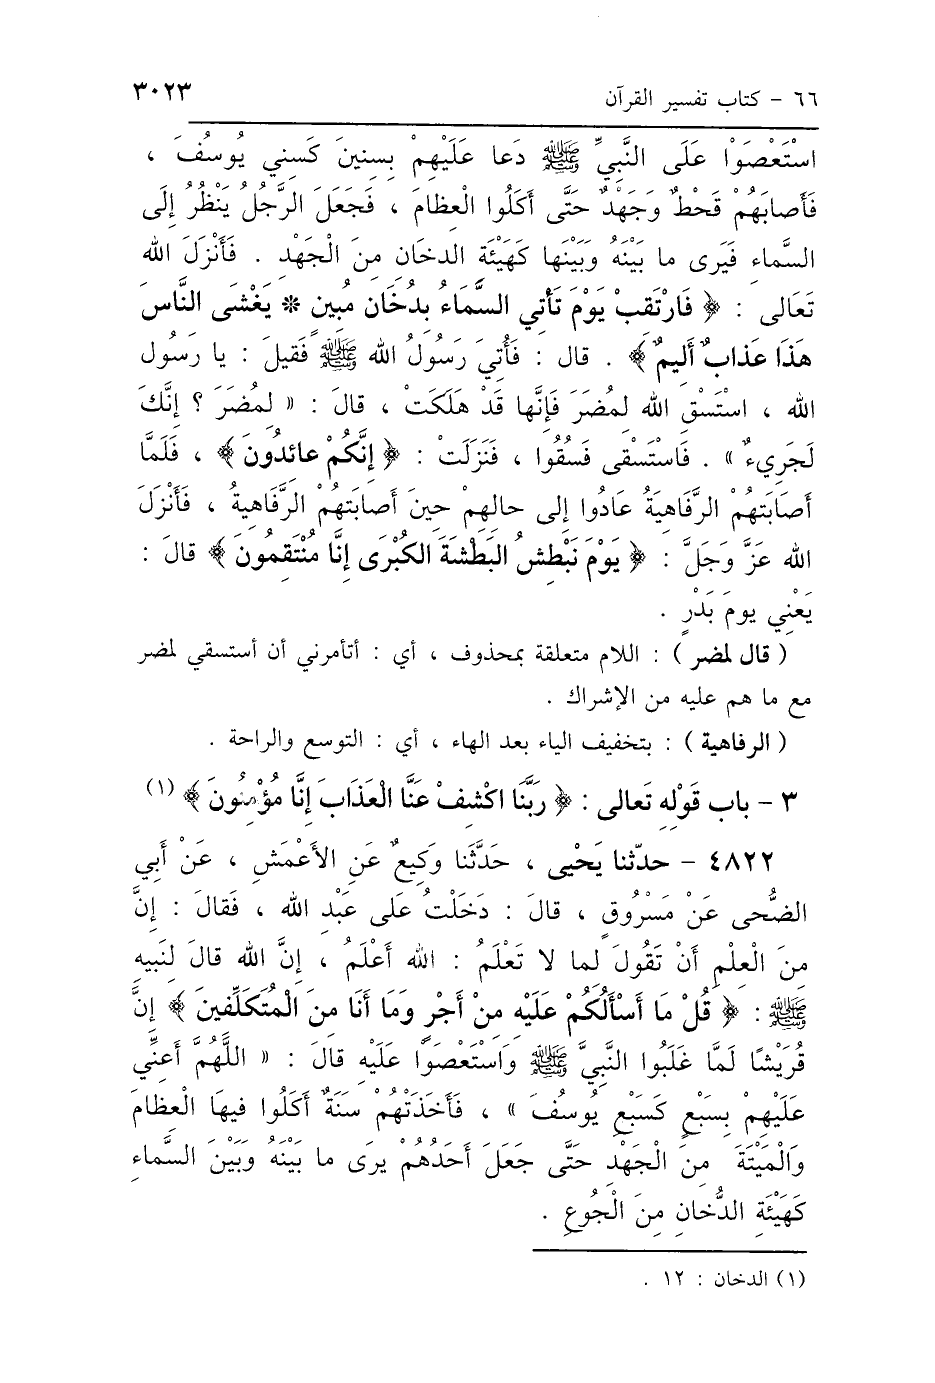 ٦٦ - كتاب تفسير القرآن ٣٠٢٣
اسْتَعْصَوْا عَلَى النَّبِيِّ ﷺ دَعا عَلَيْهِمْ بِسِنِينَ كَسِنِي يُوسُفَ ،
فَأَصابَهُمْ قَحْطٌ وَجَهْدٌ حَتَّى أَكَلُوا الْعِظامَ ، فَجَعَلَ الرَّجُلُ يَنْظُرُ إِلَى
السَّماءِ فَيَرَى ما بَيْنَهُ وَبَيْنَها كَهَيْئَةِ الدخانِ مِنَ الْجَهْدِ . فَأَنْزَلَ الله
تَعَالى : ﴿ فَارْتَقِبْ يَوْمَ تَأْتِي السَّمَاءُ بِدُخَانٍ مُبِينٍ * يَغْشَى النَّاسَ
هَذَا عَذابٌ أَلِيمٌ ﴾ . قال : فَأُتِيَ رَسُولُ الله ﷺ فَقِيلَ : يا رَسُولَ
الله ، اسْتَسْقِ الله لِمُضَرَ فَإِنَّها قَدْ هَلَكَتْ ، قالَ : « لِمُضَرَ ؟ إِنَّكَ
لَجَرِيءٌ » . فَاسْتَسْقى فَسُقُوا ، فَنَزَلَتْ : ﴿ إِنَّكُمْ عائِدُونَ ﴾ ، فَلَمَّا
أَصَابَتهُمْ الرَّفَاهِيَةُ عَادُوا إِلى حالِهِمْ حِينَ أَصابَتهُمْ الرَّفَاهِيةُ ، فَأَنْزَلَ
الله عَزَّ وَجَلَّ : ﴿ يَوْمَ نَبْطِشُ البَطْشَةَ الكُبْرَى إِنَّا مُنْتَقِمُونَ ﴾ قالَ :
يَعْنِي يومَ بَدْرٍ .
( قال لمضر ) : اللام متعلقة بمحذوف ، أي : أتأمرني أن أستسقي لمضر
مع ما هم عليه من الإشراك .
( الرفاهية ) : بتخفيف الياء بعد الهاء ، أي : التوسع والراحة .
٣ - باب قَوْلِهِ تَعالى : ﴿ رَبَّنَا اكْشِفْ عَنَّا الْعَذَابَ إِنَّا مُؤْمِنُونَ ﴾ (١)
٤٨٢٢ - حدّثنا يَحْيى ، حَدَّثَنا وَكِيعٌ عَنِ الأَعْمَشِ ، عَنْ أَبِي
الضُّحى عَنْ مَسْرُوقٍ ، قالَ : دَخَلْتُ عَلى عَبْدِ الله ، فَقالَ : إِنَّ
مِنَ الْعِلْمِ أَنْ تَقُولَ لِما لا تَعْلَمُ : الله أَعْلَمُ ، إِنَّ الله قالَ لِنَبِيهِ
ﷺ : ﴿ قُلْ مَا أَسْأَلُكُمْ عَلَيْهِ مِنْ أَجْرٍ وَمَا أَنَا مِنَ الْمُتَكَلِّفِينَ ﴾ إِنَّ
قُرَيْشًا لَمَّا غَلَبُوا النَّبِيَّ ﷺ وَاسْتَعْصَوْا عَلَيْهِ قالَ : « اللَّهُمَّ أَعِنِّي
عَلَيْهِمْ بِسَبْعٍ كَسَبْعِ يُوسُفَ » ، فَأَخَذَتْهُمْ سَنَةٌ أَكَلُوا فِيهَا الْعِظامَ
وَالْمَيْتَةَ مِنَ الْجَهْدِ حَتَّى جَعَلَ أَحَدُهُمْ يرَى ما بَيْنَهُ وَبَيْنَ السَّماءِ
كَهَيْئَةِ الدُّخانِ مِنَ الْجُوعِ .
(١) الدخان : ١٢ .